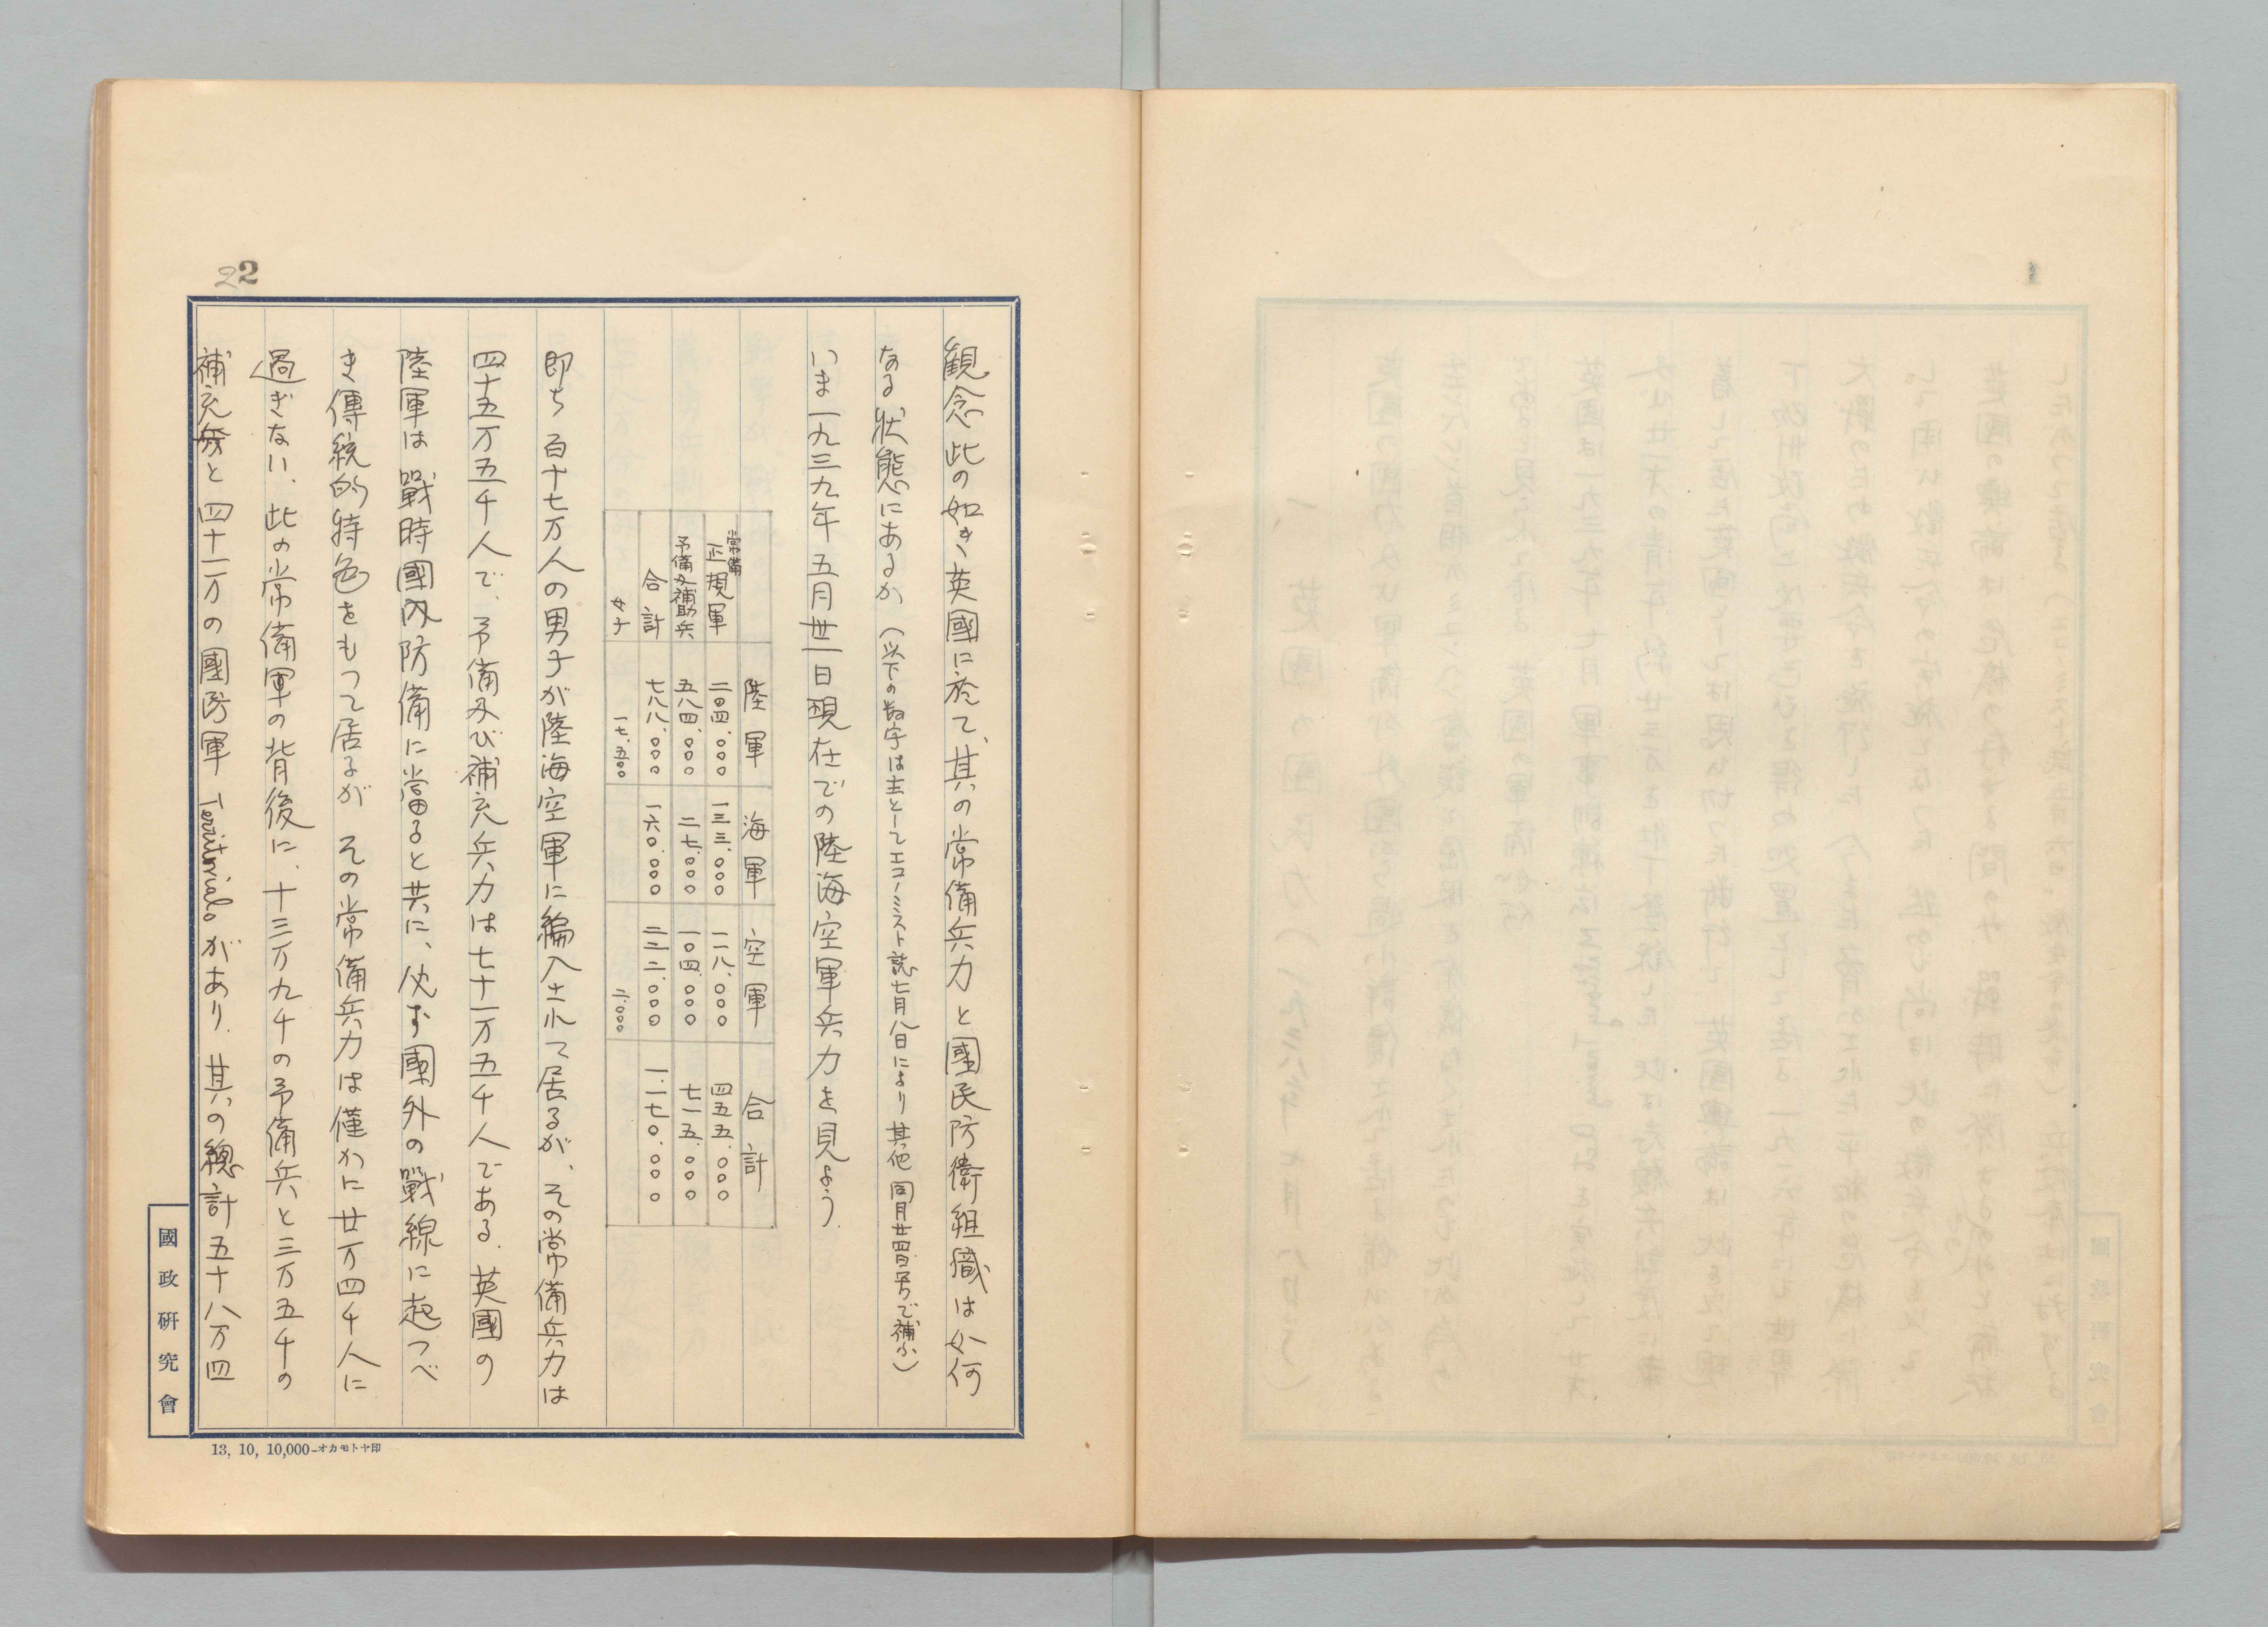 22
観念此の如き英國に於て、其の常備兵力と國民防衛組織は如何
なる狀態にあるか（以下の数字は主としてエコノミスト誌七月八日により其他同月廿四号で補ふ）
いま一九三九年五月丗一日現在での陸海空軍兵力を見よう.
陸軍 海軍 空軍 合計
常備正規軍 二〇四.〇〇〇 一三三.〇〇〇 一一八.〇〇〇 四五五.〇〇〇
予備及補助兵 五八四.〇〇〇 二七.〇〇〇 一〇四.〇〇〇 七一五.〇〇〇
合計 七八八.〇〇〇 一六〇.〇〇〇 二二二.〇〇〇 一.一七〇.〇〇〇
女子 一七.五〇〇 二.〇〇〇
即ち百十七万人の男子が陸海空軍に編入されて居るが、その常備兵力は
四十五万五千人で、予備及び補充兵力は七十一万五千人である. 英國の
陸軍は戰時國内防備に當ると共に、必ず國外の戰線に起つべ
き傳統的特色をもつて居るが その常備兵力は僅かに廿万四千人に
過ぎない、此の常備軍の背後に、十三万九千の予備兵と三万五千の
補充兵と四十一万の國防軍 Territorialsがあり. 其の總計五十八万四
國政研究會
13, 10, 10,000-オカモトヤ印